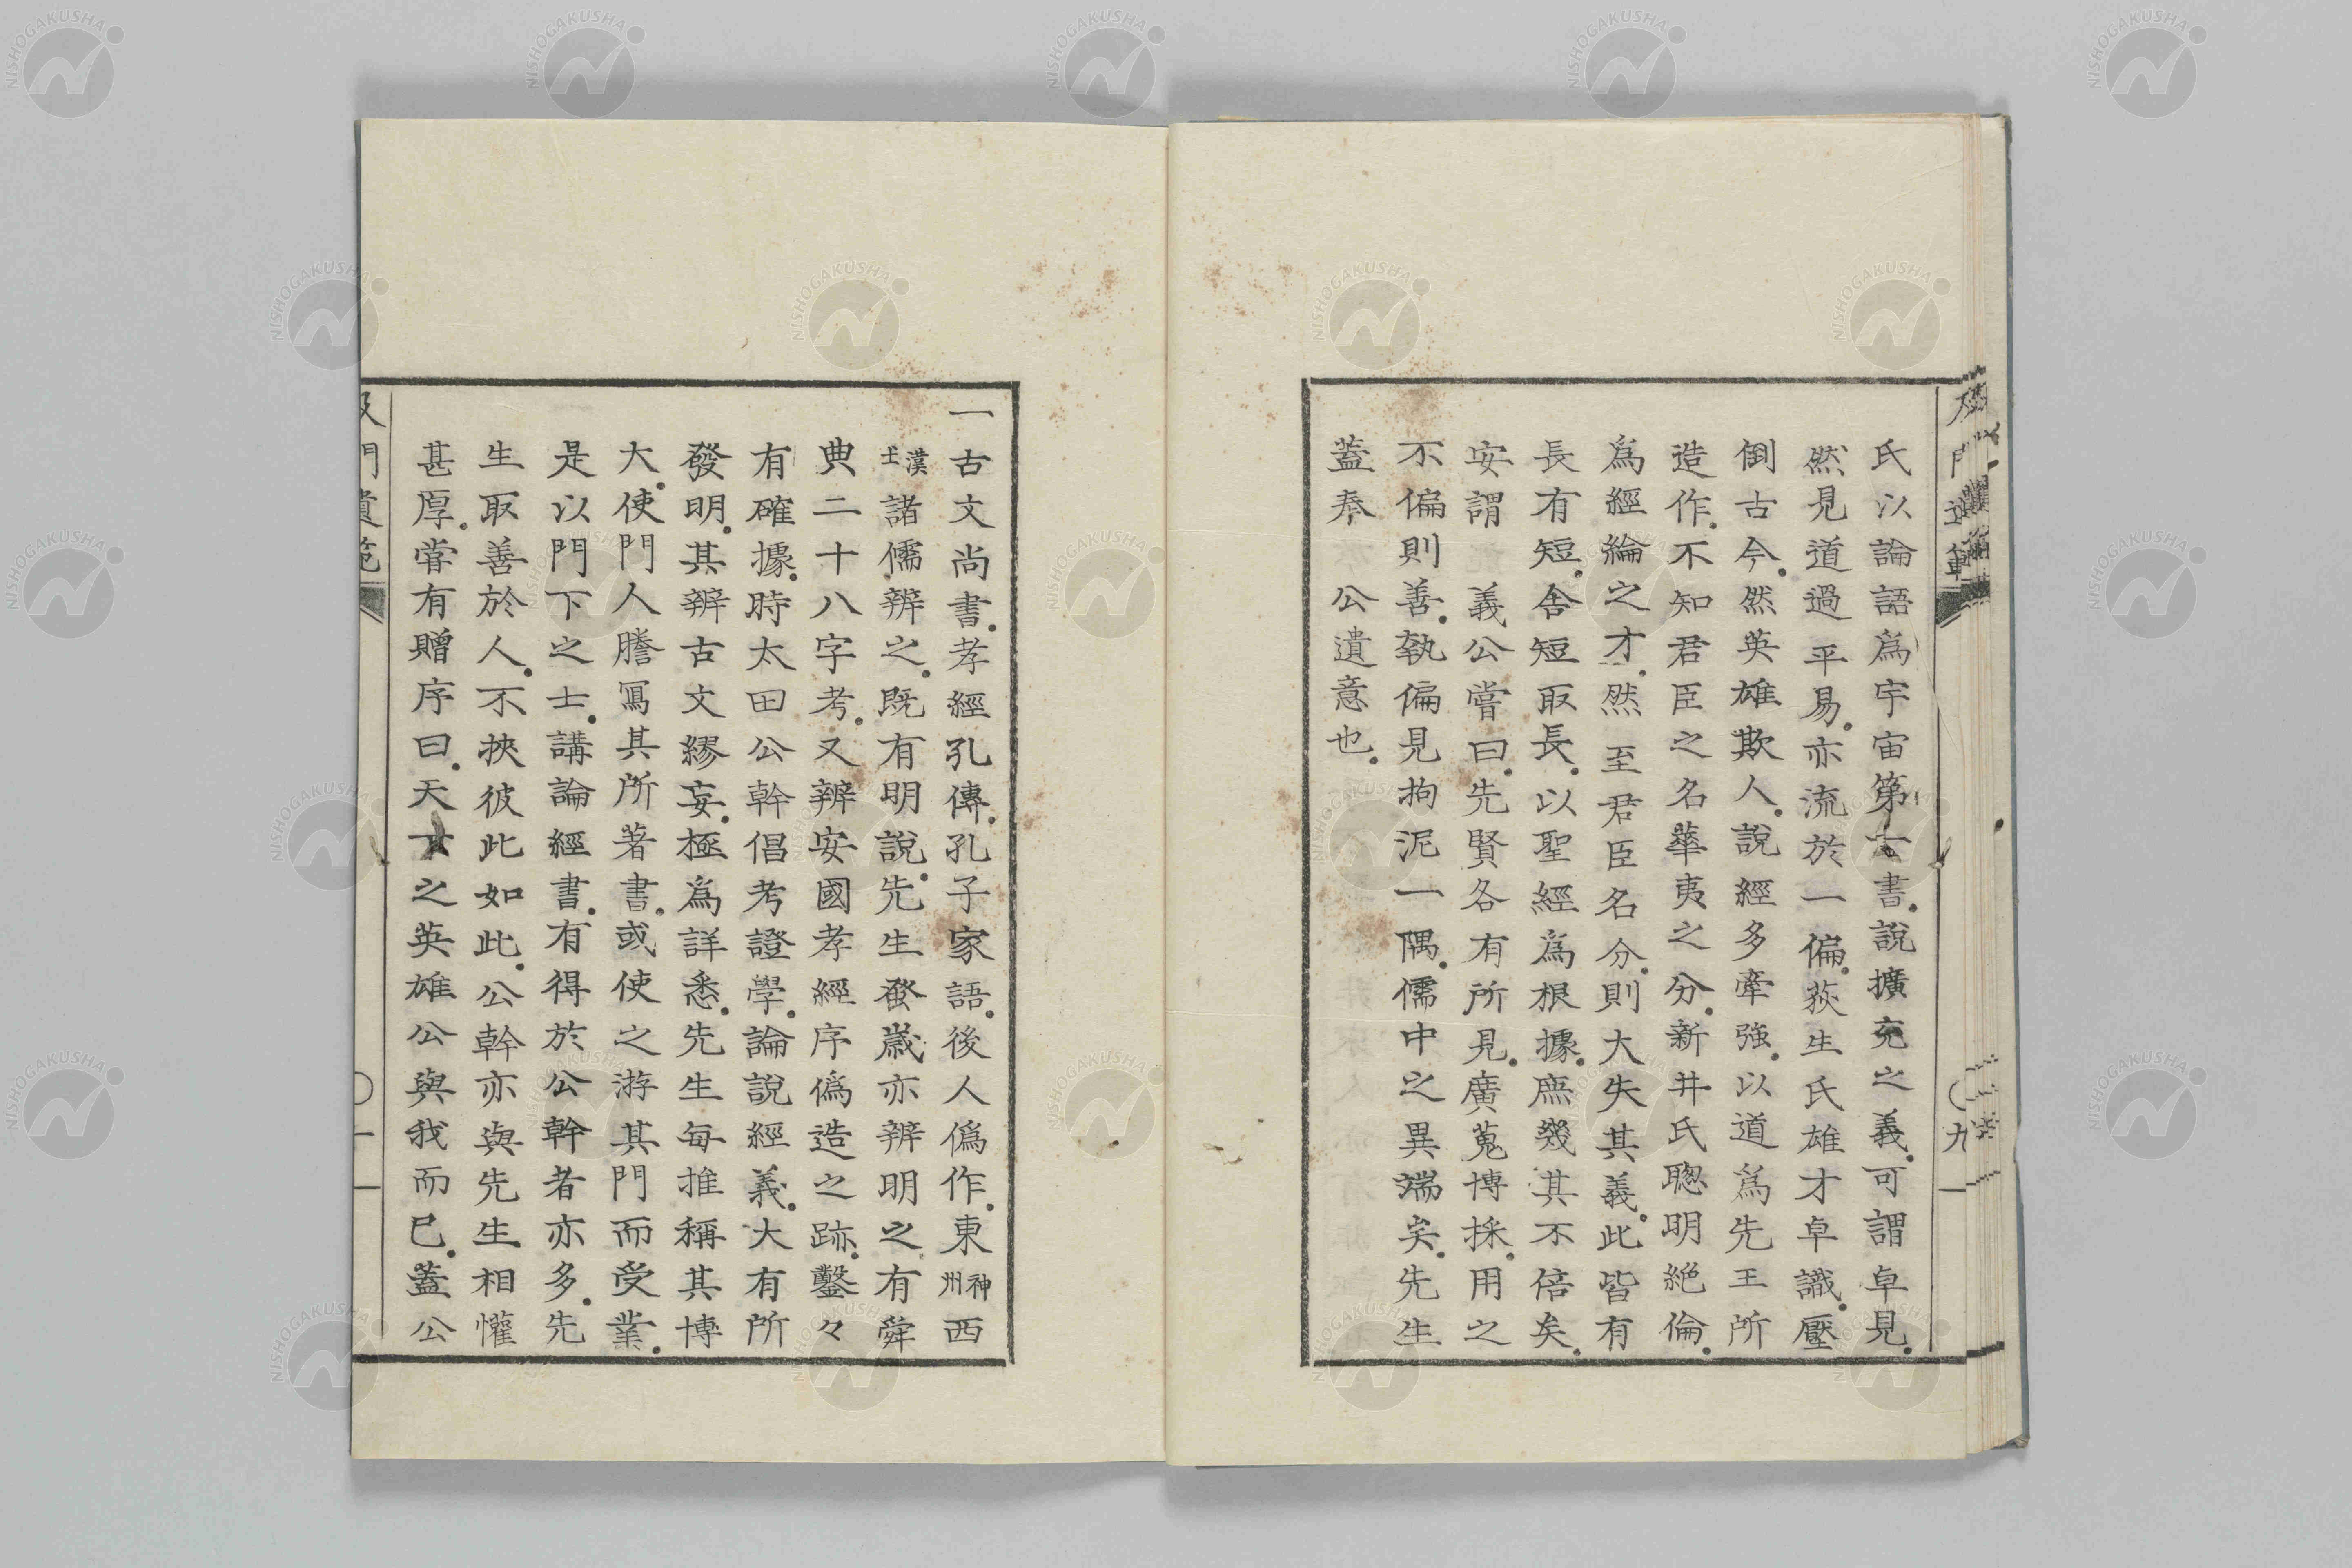 氏以論語爲宇宙第一書。說擴充之義。可謂卓見。
然見道過平易。亦流於一偏。荻生氏雄才卓識。壓
倒古今。然英雄欺人。說經多牽強。以道爲先王所
造作。不知君臣之名華夷之分。新井氏聰明絶倫。
爲經綸之才。然至君臣名分。則大失其義。此皆有
長有短。舍短取長。以聖經爲根據。庶幾其不倍矣。
安謂義公嘗曰。先賢各有所見。廣蒐博採。用之
不偏則善。執偏見拘泥一隅。儒中之異端矣。先生
蓋奉公遺意也。
一古文尚書。孝經孔傳。孔子家語。後人僞作。東神州西
漢土諸儒辨之。既有明說。先生發蒙亦辨明之有舜
典二十八字考。又辨安國孝經序僞造之跡。鑿々
有確據。時太田公幹倡考證學。論說經義。大有所
發明。其辨古文繆妄。極爲詳悉。先生每推稱其博
大。使門人謄寫其所著書。或使之游其門而受業。
是以門下之士。講論經書。有得於公幹者亦多。先
生取善於人。不挾彼此如此。公幹亦與先生相懽
甚厚。嘗有贈序曰。天下之英雄公與我而已。蓋公
及門遺範
〇十一
NISHOGAKUSHA